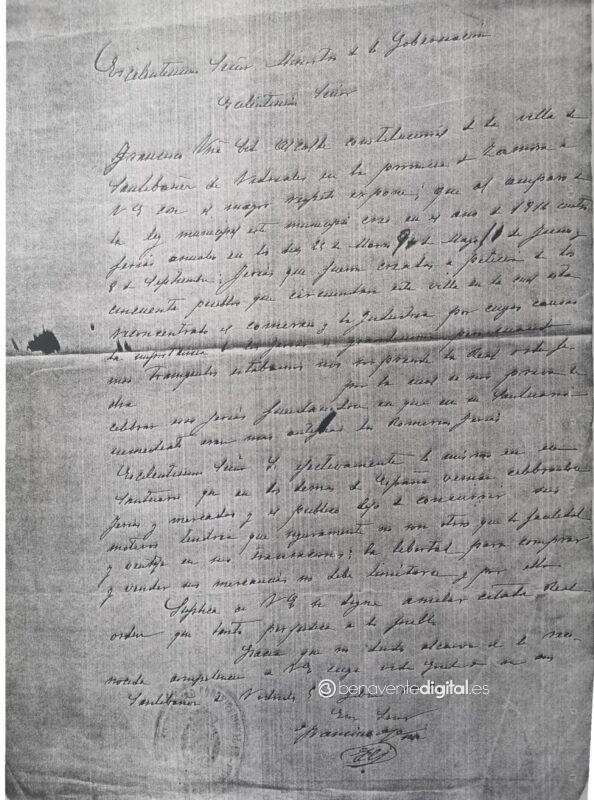 Excelentisimo Señor Ministro de la Gobernación
Excelentisimo Señor
Francisco Alcalde constitucional de la villa de
Santibañez de Vidriales en la provincia de Zamora a
V E con el mayor respeto expone; que al amparo de
la ley municipal este municipio creo en el año de 1916 cuatro
ferias anuales en los dias 28 de Marzo de Mayo de Junio y
8 de Septiembre; ferias que fueron creadas a peticion de los
cincuenta pueblos que circundan esta villa en la cual esta
reconcentrado el comercio y la industria por cuyas causas
la importancia de las ferias cuando
mas tranquilos estabamos nos sorprende la Real orden fe
cha por la cual se nos priva de
celebrar nos ferias fundandose en que en un Santuario
inmediato eran mas antiguas las Romerias ferias
Excelentisimo Señor Si efectivamente lo mismo en ese
Santuario que en los demas de España venian celebrandose
ferias y mercados y el publico dejo de concurrir sus
motivos tendria que seguramente no son otros que la facilidad
y ventaja en sus transaciones; la libertad para comprar
y vender sus mercancias no debe limitarse y por ello
Suplica a V E se digne anular citada Real
orden que tanto perjudica a los pueblos
Gracia que no dudo alcanzar de la reco
nocida competencia de V E cuya vida guarde Dios m as
Santibañez de Vidriales
Exmo Señor
Francisco
benaventedigital.es